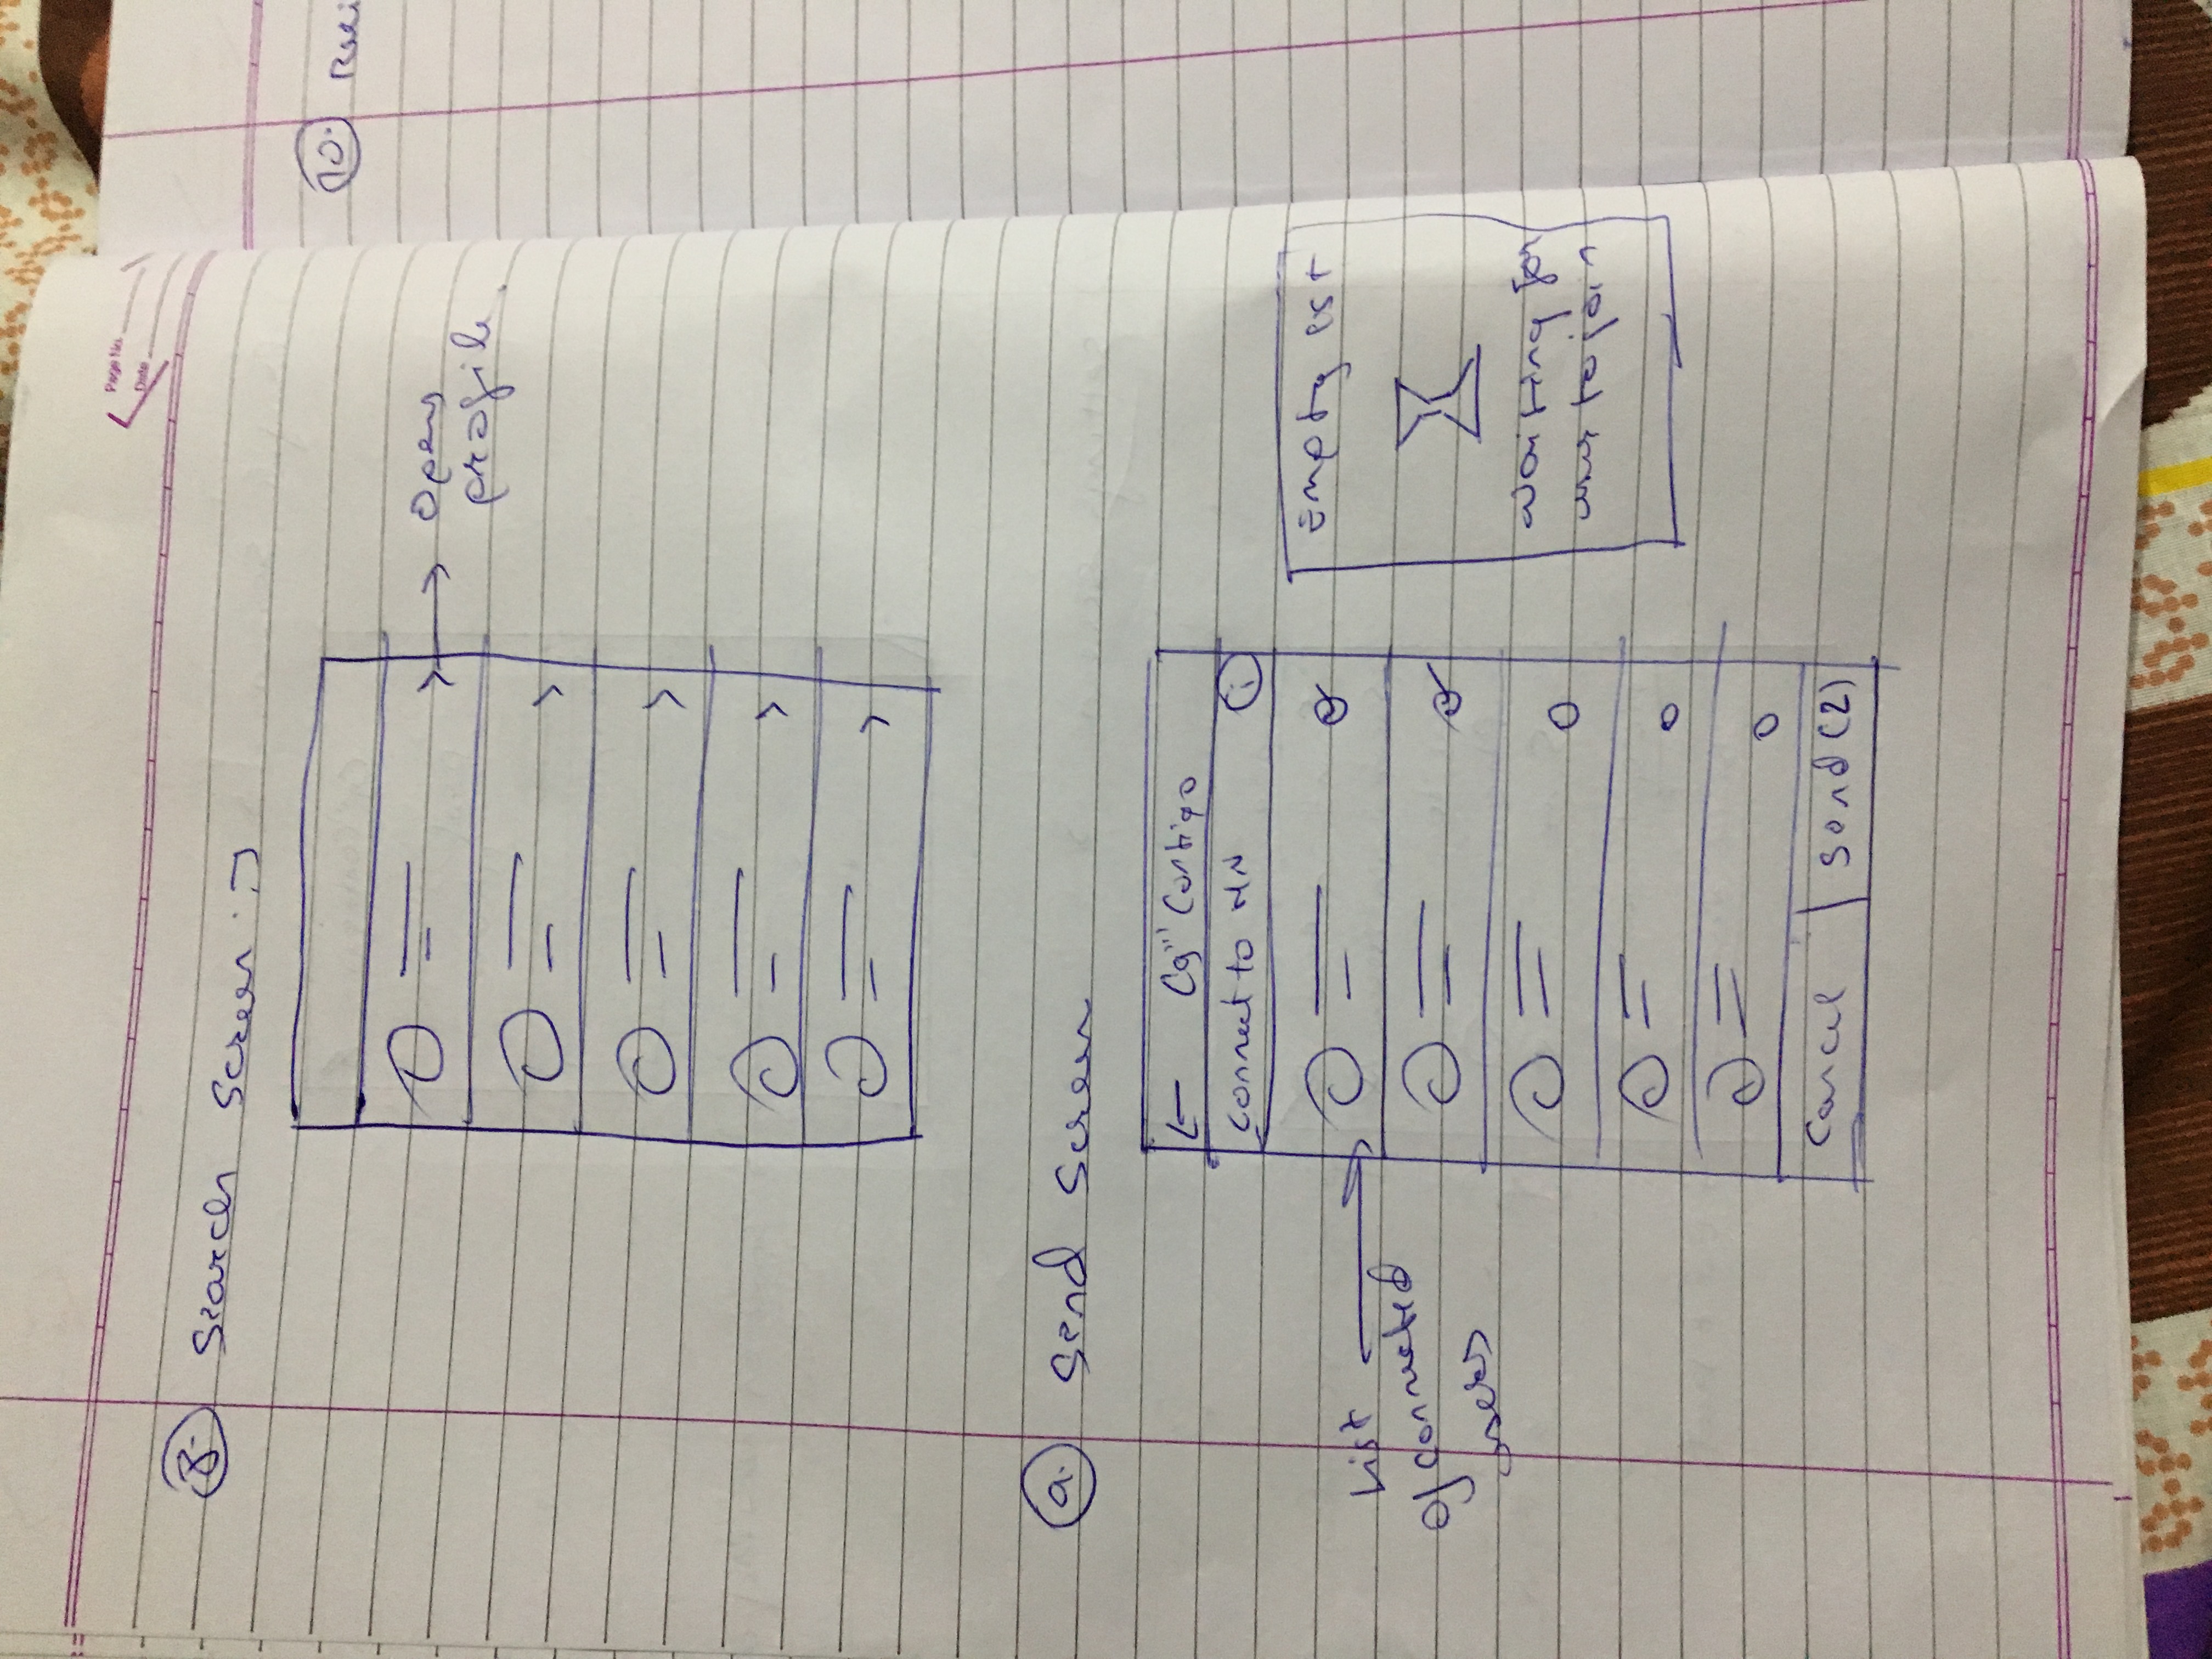 Page No.
Date
8. Search Screen :->
Opens
profile.
9. Send Screen
← Contigo
Connect to MN i
List
of connected
users
Empty list
Waiting for
user to join
Cancel | Send (2)
10.